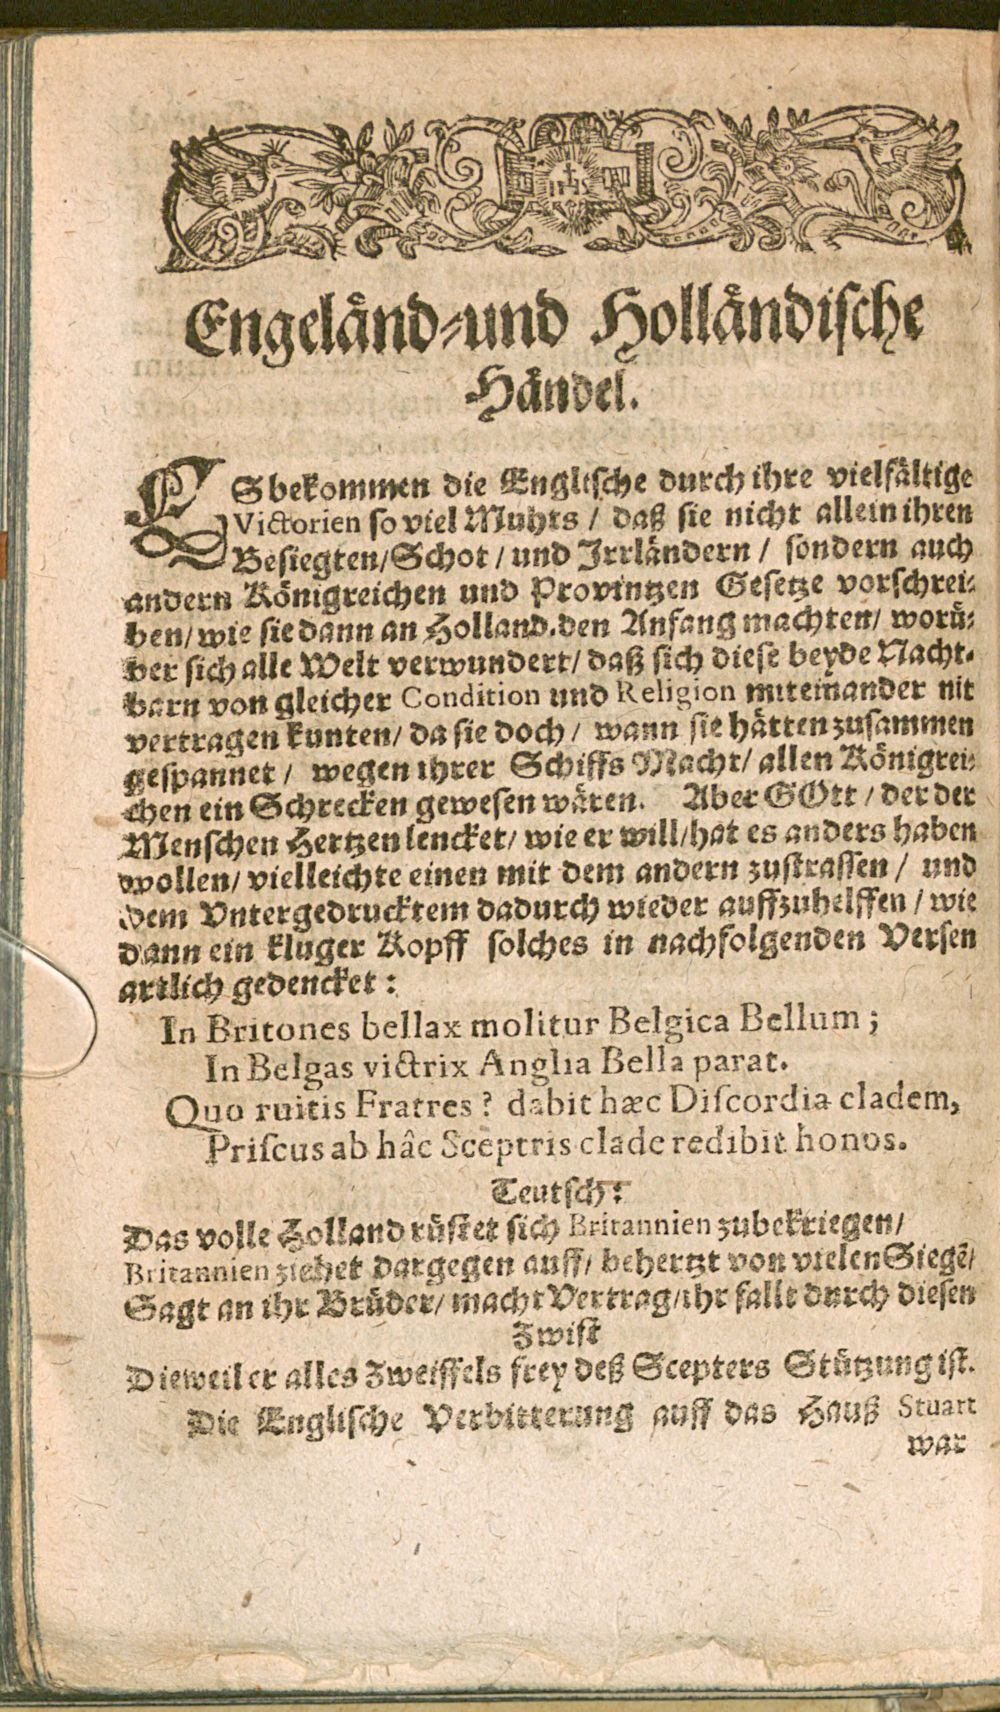 IHS
Engeländ-und Holländische
Händel.
ES bekommen die Englische durch ihre vielfältige
Victorien so viel Muhts / daß sie nicht allein ihren
Besiegten/Schot / und Irrländern / sondern auch
andern Königreichen und Provintzen Gesetze vorschrei-
ben/ wie sie dann an Holland.den Anfang machten/ worü-
ber sich alle Welt verwundert/ daß sich diese beyde Nacht-
barn von gleicher Condition und Religion miteinander nit
vertragen kunten/ da sie doch / wann sie hätten zusammen
gespannet / wegen ihrer Schiffs Macht/ allen Königrei-
chen ein Schrecken gewesen wären. Aber GOtt / der der
Menschen Hertzen lencket/ wie er will/hat es anders haben
wollen/ vielleichte einen mit dem andern zustraffen / und
dem Vntergedrucktem dadurch wieder auffzuhelffen / wie
dann ein kluger Kopff solches in nachfolgenden Versen
artlich gedencket :
In Britones bellax molitur Belgica Bellum ;
In Belgas victrix Anglia Bella parat.
Quo ruitis Fratres ? dabit hæc Discordia cladem,
Priscus ab hâc Sceptris clade redibit honos.
Teutsch :
Das volle Holland rüstet sich Britannien zubekriegen/
Britannien ziehet dargegen auff/ behertzt von vielen Siegē/
Sagt an ihr Brüder/ macht Vertrag/ihr fallt durch diesen
Zwist
Dieweil er alles Zweiffels frey deß Scepters Stützung ist.
Die Englische Verbitterung auff das Hauß Stuart
war